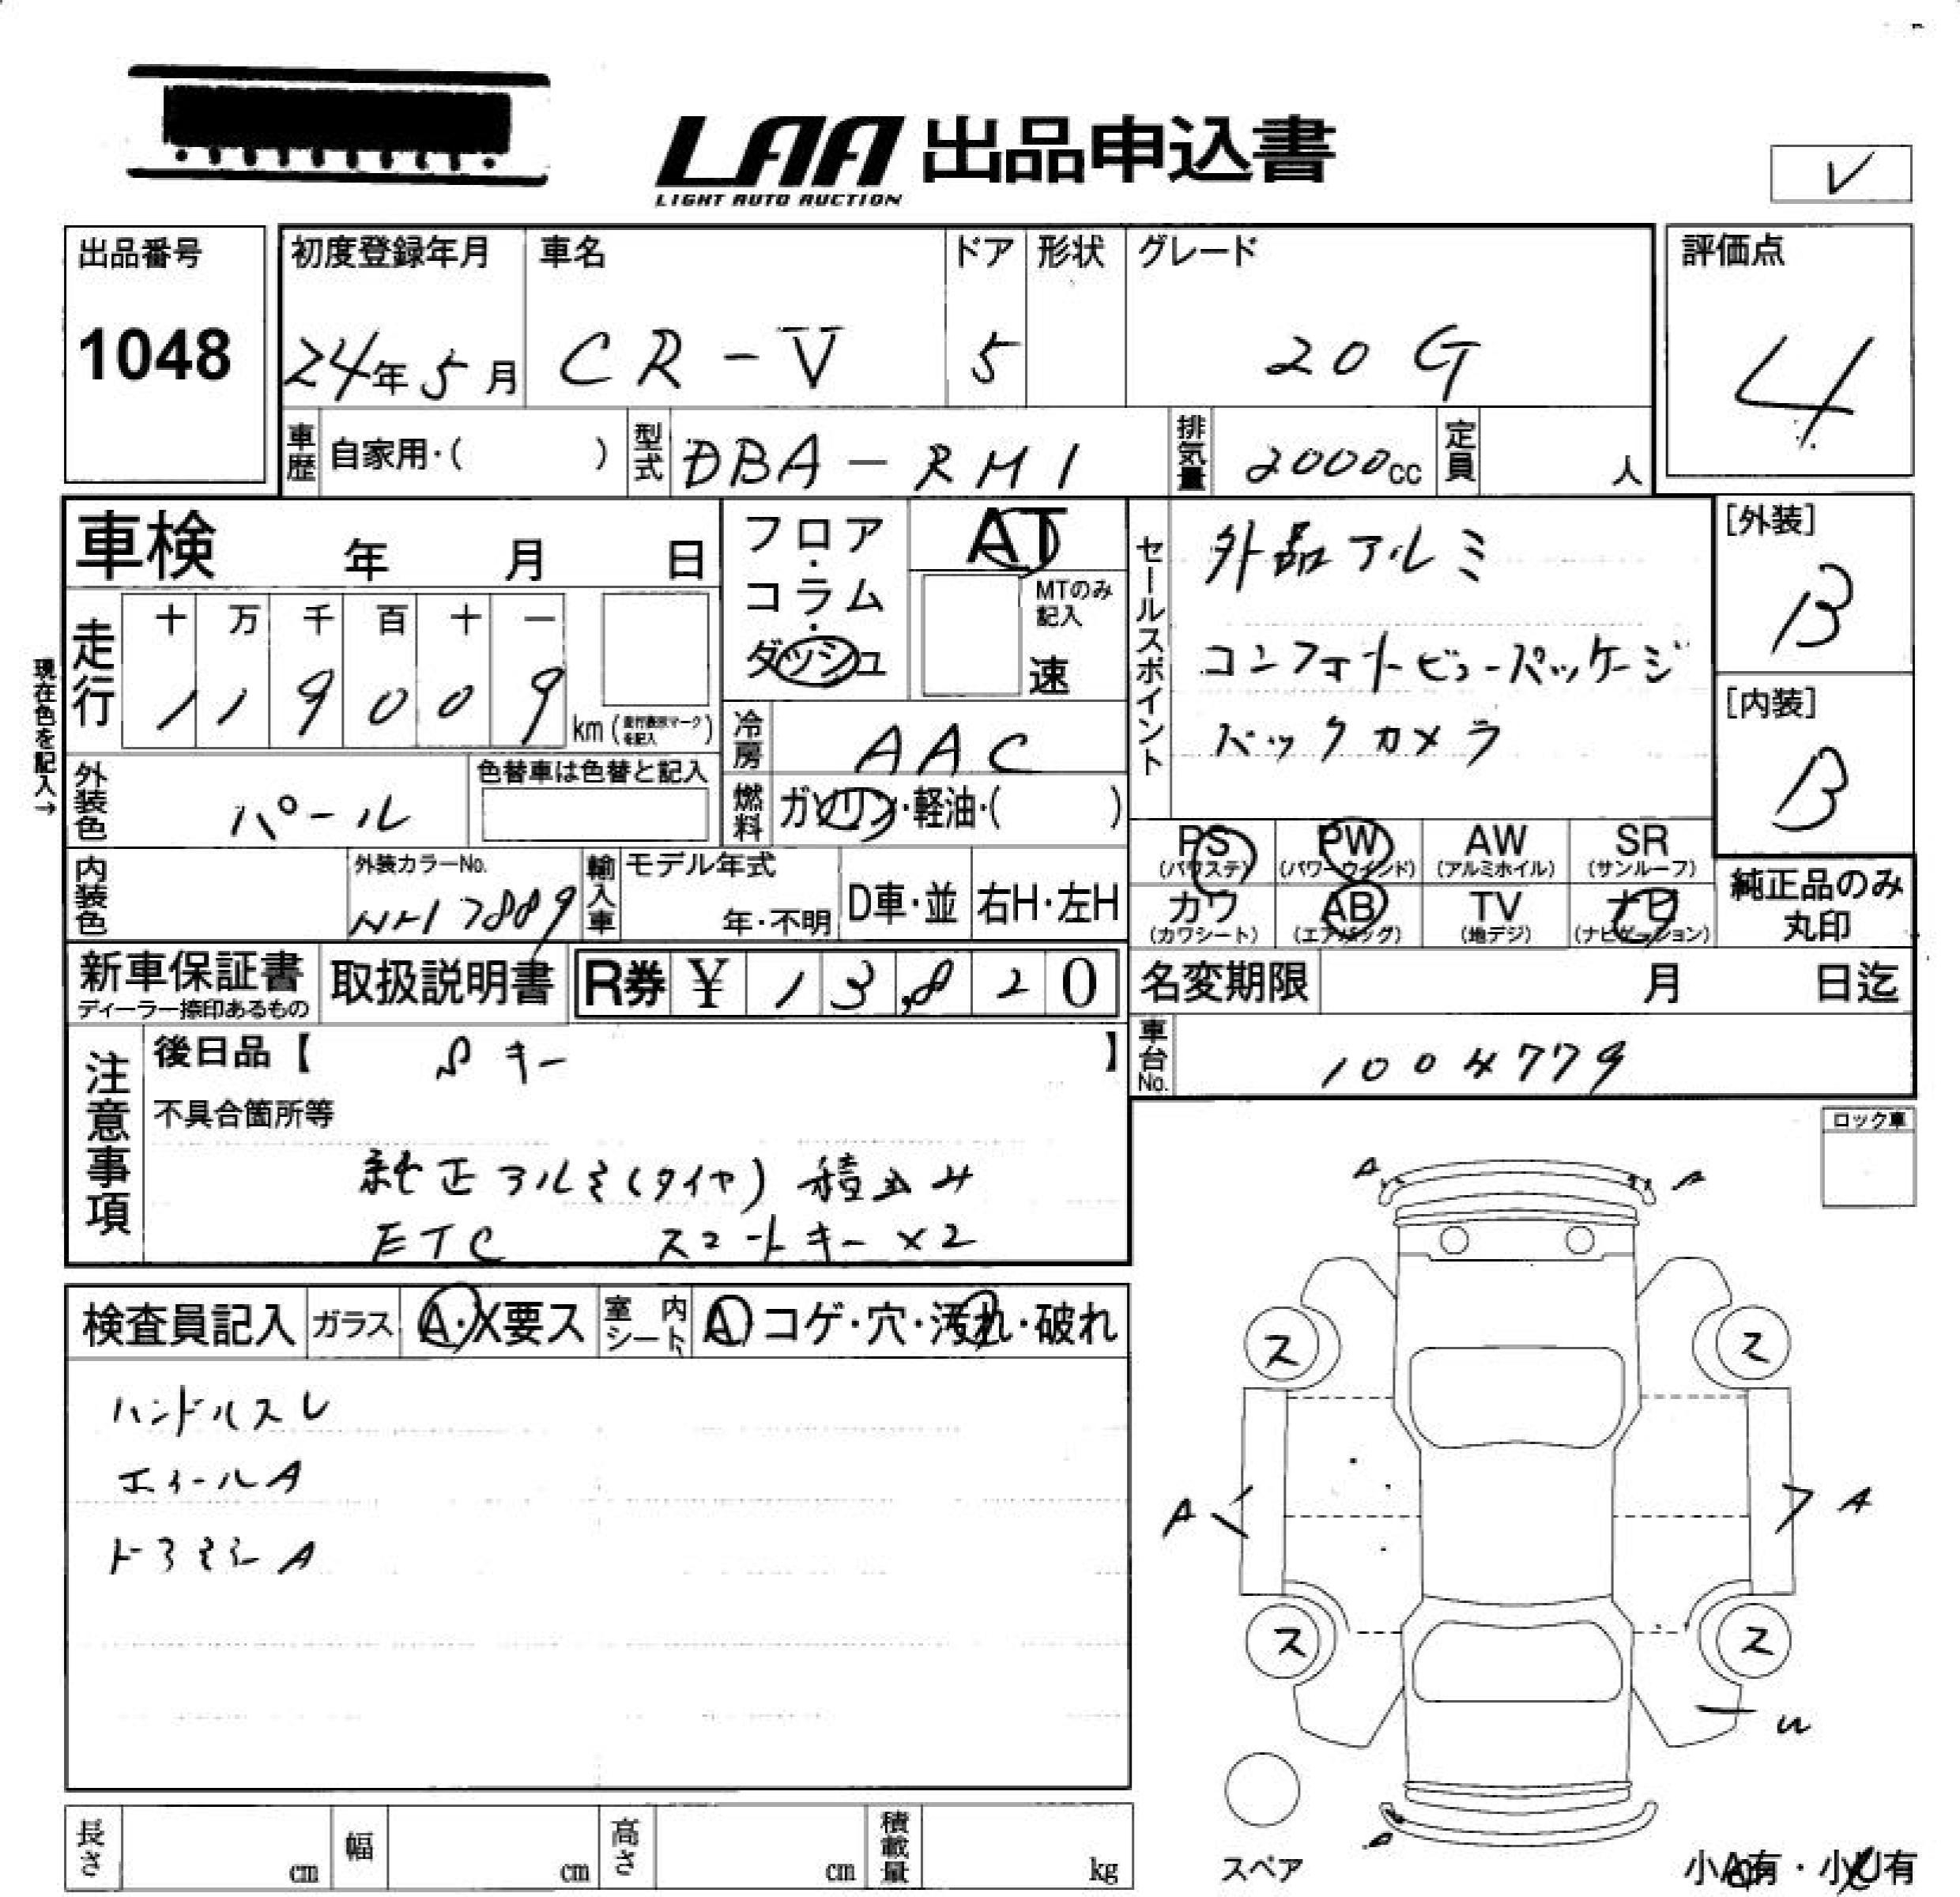 LAA 出品申込書
LIGHT AUTO AUCTION
V
出品番号
1048
初度登録年月
24年5月
車名
CR-V
ドア
5
形状
グレード
20G
評価点
4
車歴
自家用・( )
型式
DBA-RM1
排気量
2000cc
定員
人
車検 年 月 日
フロア・コラム・ダッシュ
AT
MTのみ記入
速
セールスポイント
外品アルミ
コンフォートビューパッケージ
バックカメラ
[外装]
B
[内装]
B
現在色を記入→
走行
十 万 千 百 十 一
1 1 9 0 0 9
km(走行表示マークを記入)
冷房
AAC
燃料
ガソリン・軽油・( )
外装色
パール
色替車は色替と記入
内装色
外装カラーNo.
NH788P
輸入車
モデル年式
年・不明
D車・並
右H・左H
PS
(パワステ)
PW
(パワーウインド)
AW
(アルミホイル)
SR
(サンルーフ)
カワ
(カワシート)
AB
(エアバッグ)
TV
(地デジ)
ナビ
(ナビゲーション)
純正品のみ
丸印
新車保証書
ディーラー捺印あるもの
取扱説明書
R券 ¥ 13,820
名変期限 月 日迄
車台No.
1004779
注意事項
後日品【 Sキー 】
不具合箇所等
純正アルミ(タイヤ) 積込み
ETC スマートキー×2
ロック車
検査員記入
ガラス
A・X要ス
室内シート
A コゲ・穴・汚れ・破れ
ハンドルスレ
ホイールA
ドアミラーA
A A
ス ス
A A
ス ス
U
A
スペア
小A有・小U有
長さ cm
幅 cm
高さ cm
積載量 kg